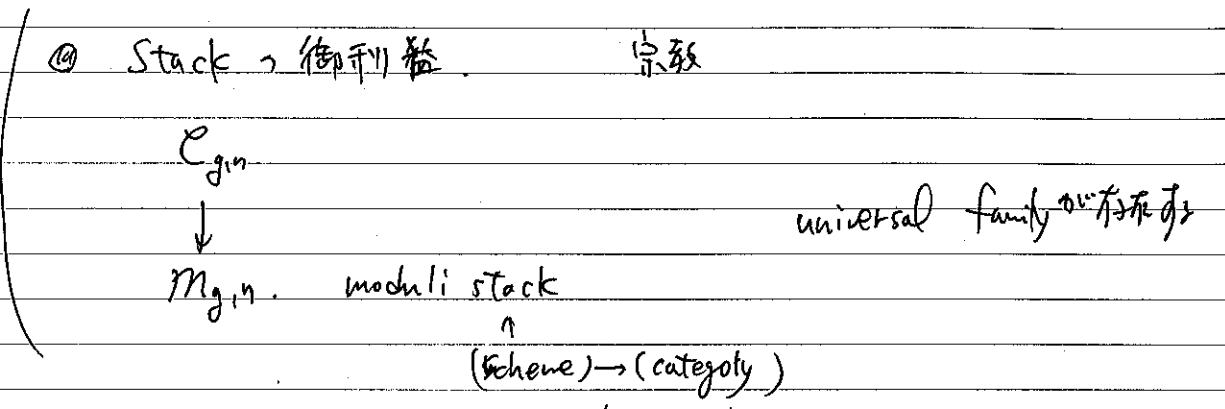 ◎ Stack の 御利益. 宗教
C_{g,n}
↓
universal family が存在する
M_{g,n}. moduli stack
↑
(scheme) → (categoty)